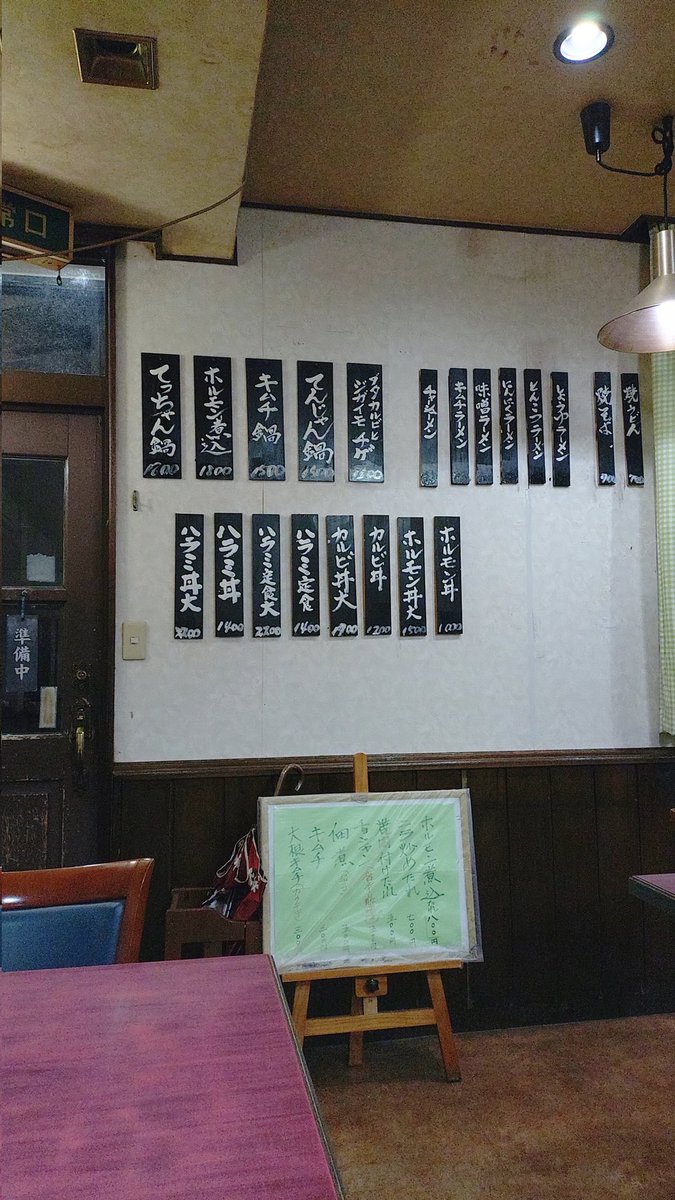 常口
準備中
てっちゃん鍋
1600
ホルモン煮込
1800
キムチ鍋
1500
てんじゃん鍋
1500
ブタカルビと
ジャガイモ チゲ
チャシューメン
キムチラーメン
味噌ラーメン
にんにくラーメン
とんこつラーメン
しょうゆラーメン
焼そば
900
焼うどん
ハラミ丼大
ハラミ丼
1400
ハラミ定食大
2200
ハラミ定食
1400
カルビ丼大
カルビ丼
1200
ホルモン丼大
1500
ホルモン丼
1000
ホルモン煮込 八〇〇円
七〇〇円
佃煮
キムチ
大根キムチ